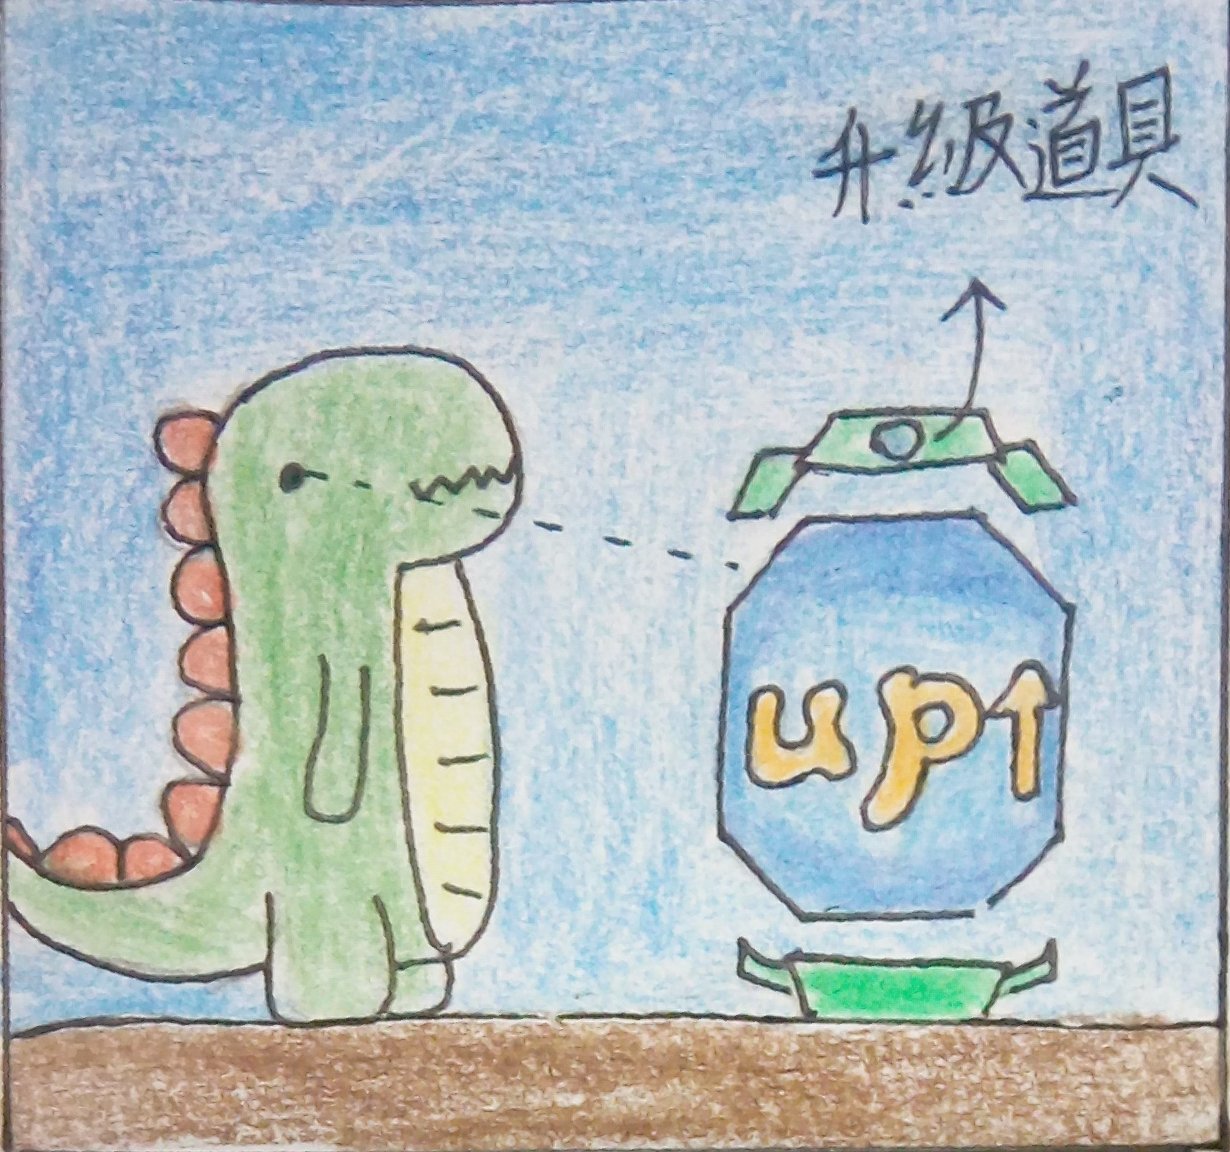 升級道具
up↑